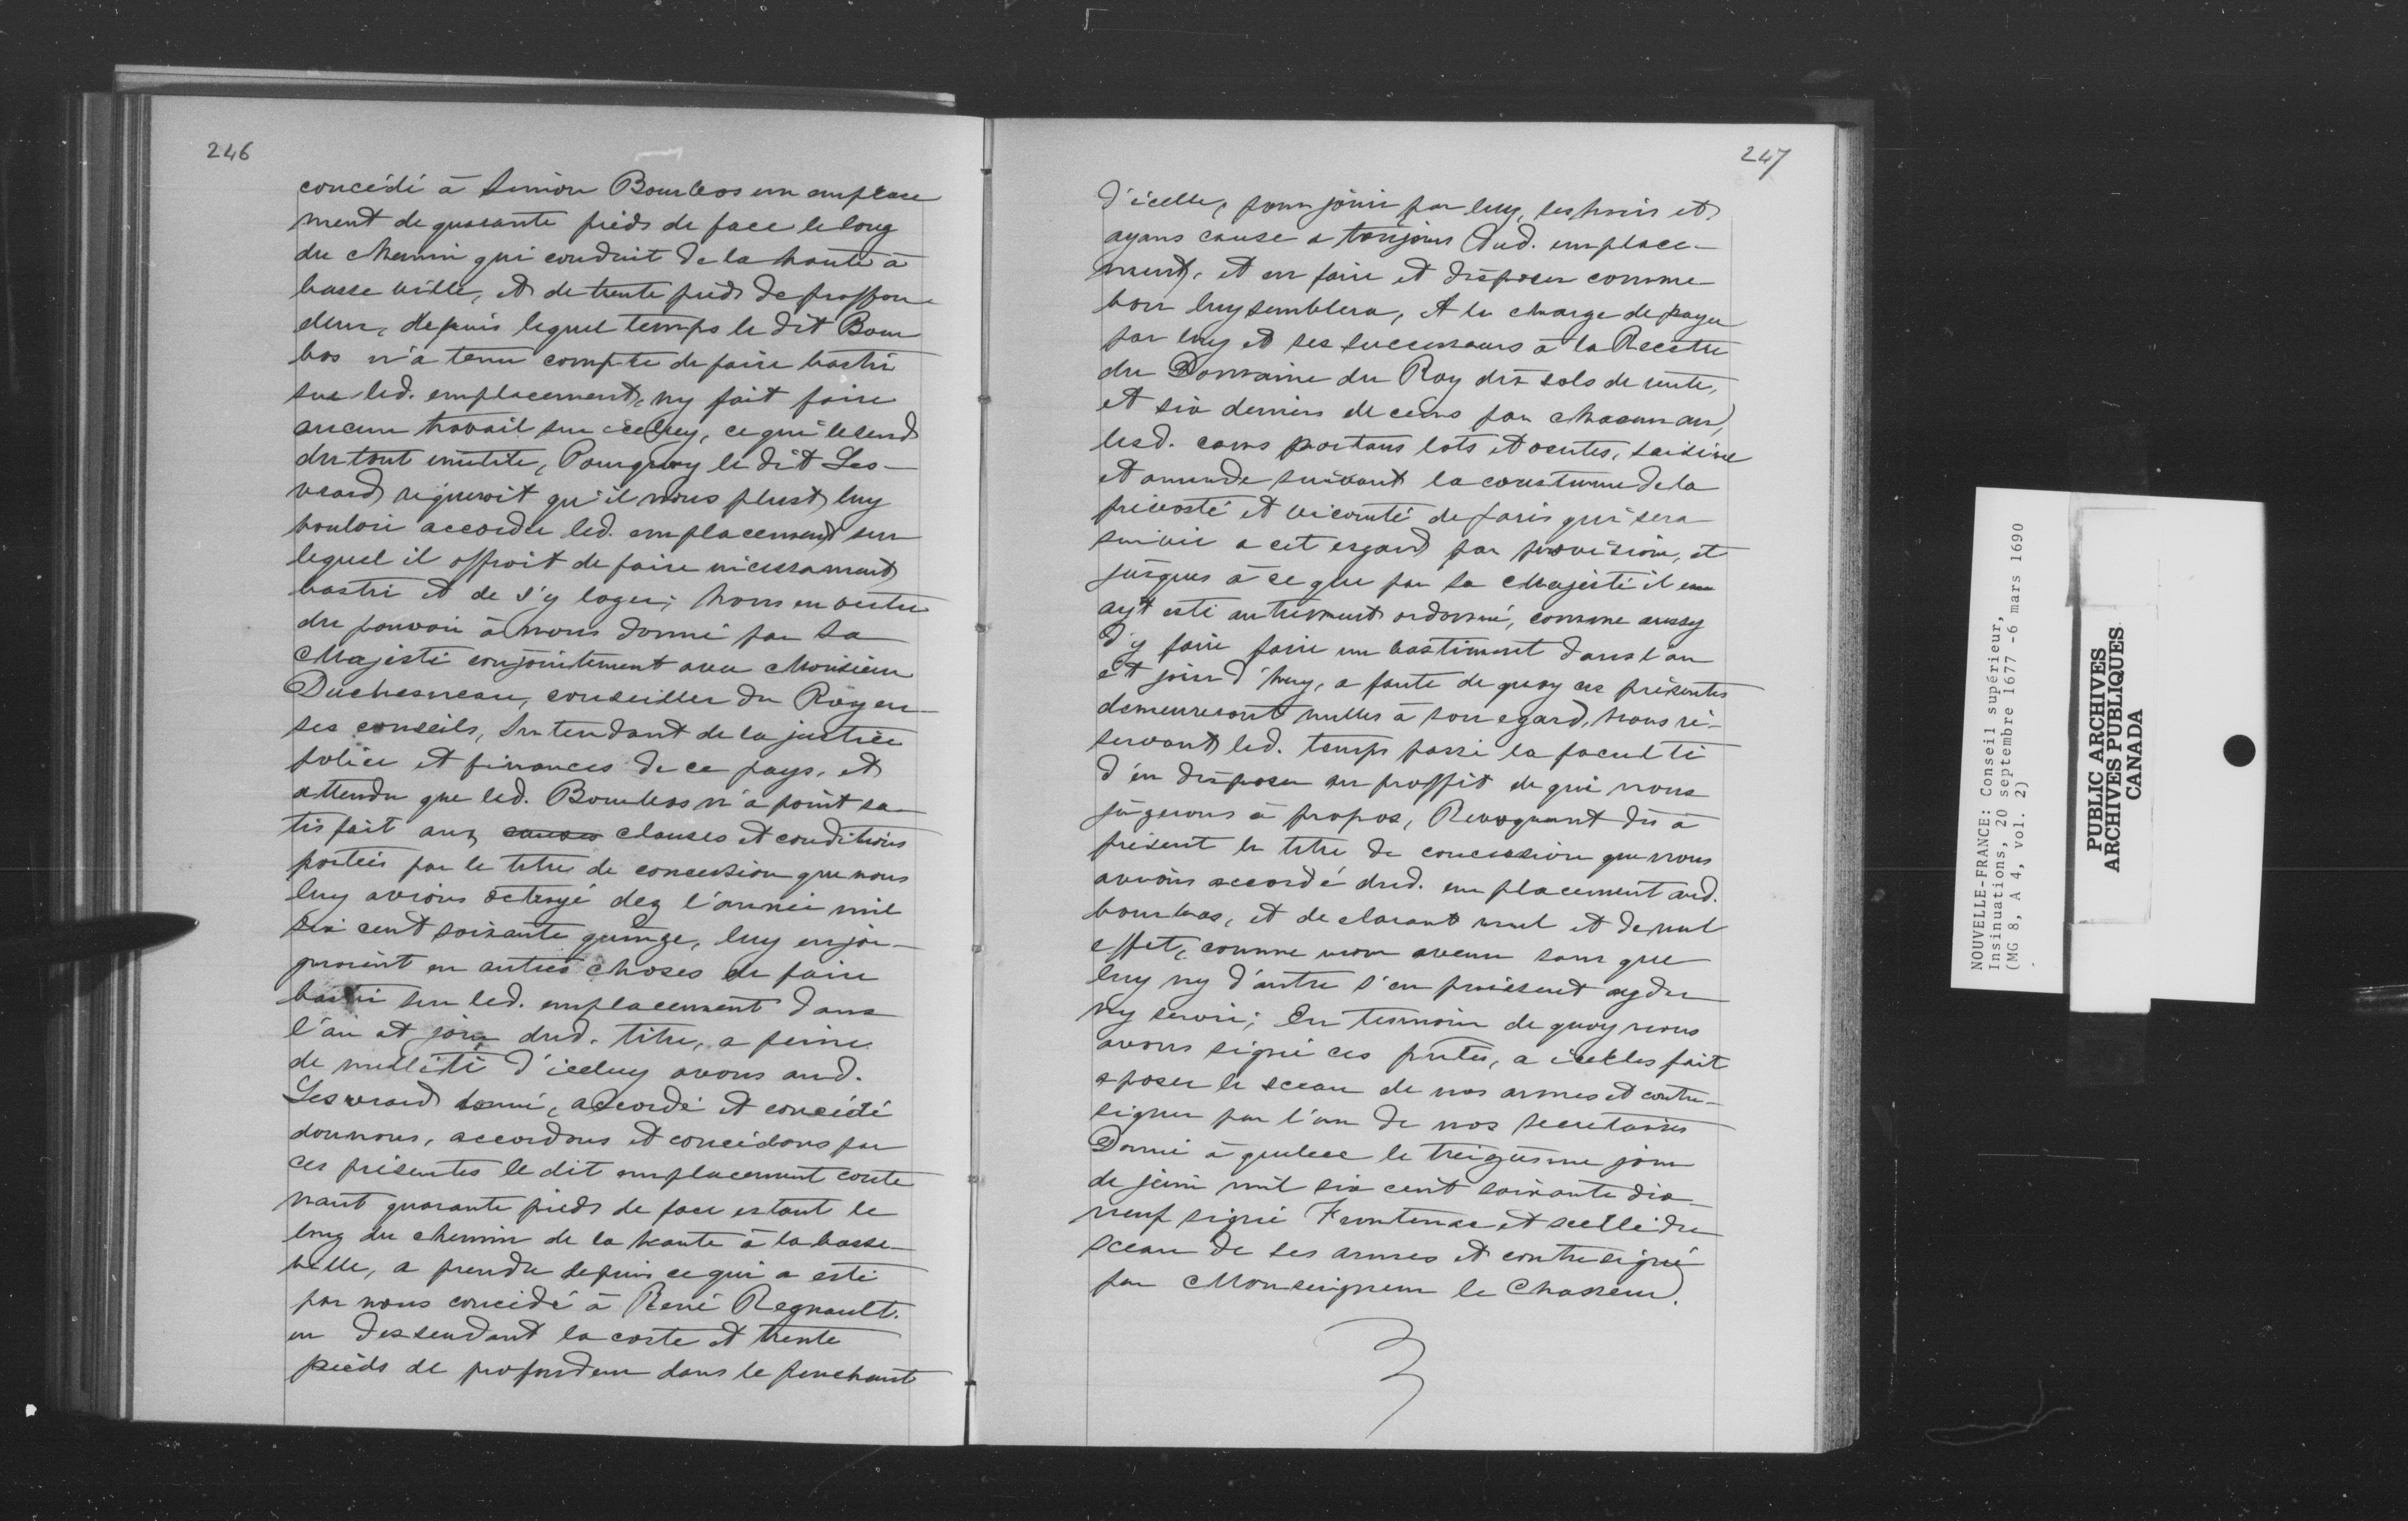 246
concédé à Simon Bourbos un emplace
ment de quarante pieds de face le long
du chemin qui conduit de la haute à
basse ville, et de trente pieds de proffon
deur, depuis lequel temps le dit Bour
bos n'a tenu compte de faire bastir
sur led. emplacement, ny fait faire
aucun travail sur iceluy, ce qui le rend
du tout inutile, Pourquoy le dit Les-
veard requeroit qu'il nous plust luy
vouloir accorder led. emplacement sur
lequel il offroit de faire incessament
bastir et de s'y loger; Nous en vertu
du pouvoir à nous donné par Sa
Majesté conjointement avec Monsieur
Duchesneau, conseiller du Roy en
ses conseils, Intendant de la justice
police et finances de ce pays, et
attendu que led. Bourbos n'a point sa
tisfait aux causes clauses et conditions
portées par le titre de concession que nous
luy avions octroyé dez l'année mil
six cent soixante quinze, luy enjoi-
gnoient en autres choses de faire
bastir sur led. emplacement dans
l'an et jour dud. titre, a peine
de nullité d'iceluy avons aud.
Lesveard donné, accordé et concédé
donnons, accordons et concédons par
ces présentes le dit emplacement conte
nant quarante pieds de face estant le
long du chemin de la haute à la basse
ville, a prendre depuis ce qui a esté
par nous concédé à René Regnault.
en dessendant la coste et trente
pieds de profondeur dans le penchant
247
d'icelle, pour jouir par luy, ses hoirs et
ayans cause a toujours dud. emplace-
ment, et en faire et disposer comme
bon luy semblera, A la charge de payer
par luy et ses successeurs à la Recette
du Domaine du Roy dix sols de rente,
et six deniers de cens par chacun an,
lesd. cens portans lots et ventes, saisine
et amende suivant la coustume de la
prévosté et vicomté de Paris qui sera
suivie a cet esgard par provision, et
jusques à ce que par Sa Majesté il en
ayt esté autrement ordonné, comme aussy
d'y faire faire un bastiment dans l'an
et jour d'huy, a faute de quoy ces présentes
demeureront nulles à son egard, nous ré-
servant led. temps passé la faculté
d'en disposer au proffit de qui nous
jugerons à propos, Revoquant dès à
présent le titre de concession que nous
avions accordé dud. emplacement aud.
bourbos, et declarant nul et de nul
effet, comme non avenu sans que
luy ny d'autre s'en puissent ayder
ny servir; En tesmoin de quoy nous
avons signé ces pntes, a icelles fait
aposer le sceau de nos armes et contre-
signer par l'un de nos secretaires
Donné à quebec le treiziesme jour
de juin mil six cent soixante dix
neuf signé Frontenac et scellé du
sceau de ses armes et contresigné
par Monseigneur le Chasseur.
NOUVELLE-FRANCE: Conseil supérieur,
Insinuations, 20 septembre 1677 -6 mars 1690
(MG 8, A 4, vol. 2)
PUBLIC ARCHIVES
ARCHIVES PUBLIQUES
CANADA